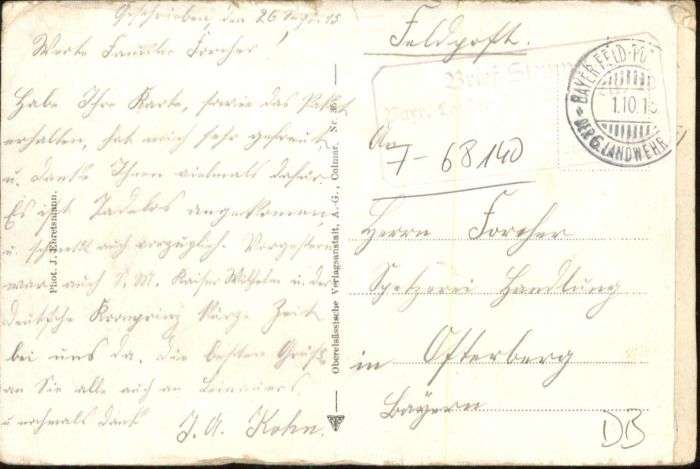 Geschrieben den 26 Sept. 15
Werte Familie Forcher!
Habe Ihre Karte, sowie das Paket
erhalten, hat mich sehr gefreut
u. danke Ihnen vielmals dafür
Es ist Tadellos angekommen,
u. schmeckt auch vorzüglich. Vorgestern
war auch S. M. Kaiser Wilhelm u. der
deutsche Kronprinz kurze Zeit
bei uns da. Die besten Grüße
an Sie alle auch an
u. nochmals Dank
J. A. Kohn.
Phot. J. Ehretsmann.
Oberelsässische Verlagsanstalt, A. G., Colmar. Nr.
Feldpost.
Brief
Bayr.
BAYER. FELD-PO
1.10.15
DER 6. LANDWEHR
An
7-68140
Herrn Forcher
Spezerei Handlung
in Osterberg
Bayern
DB